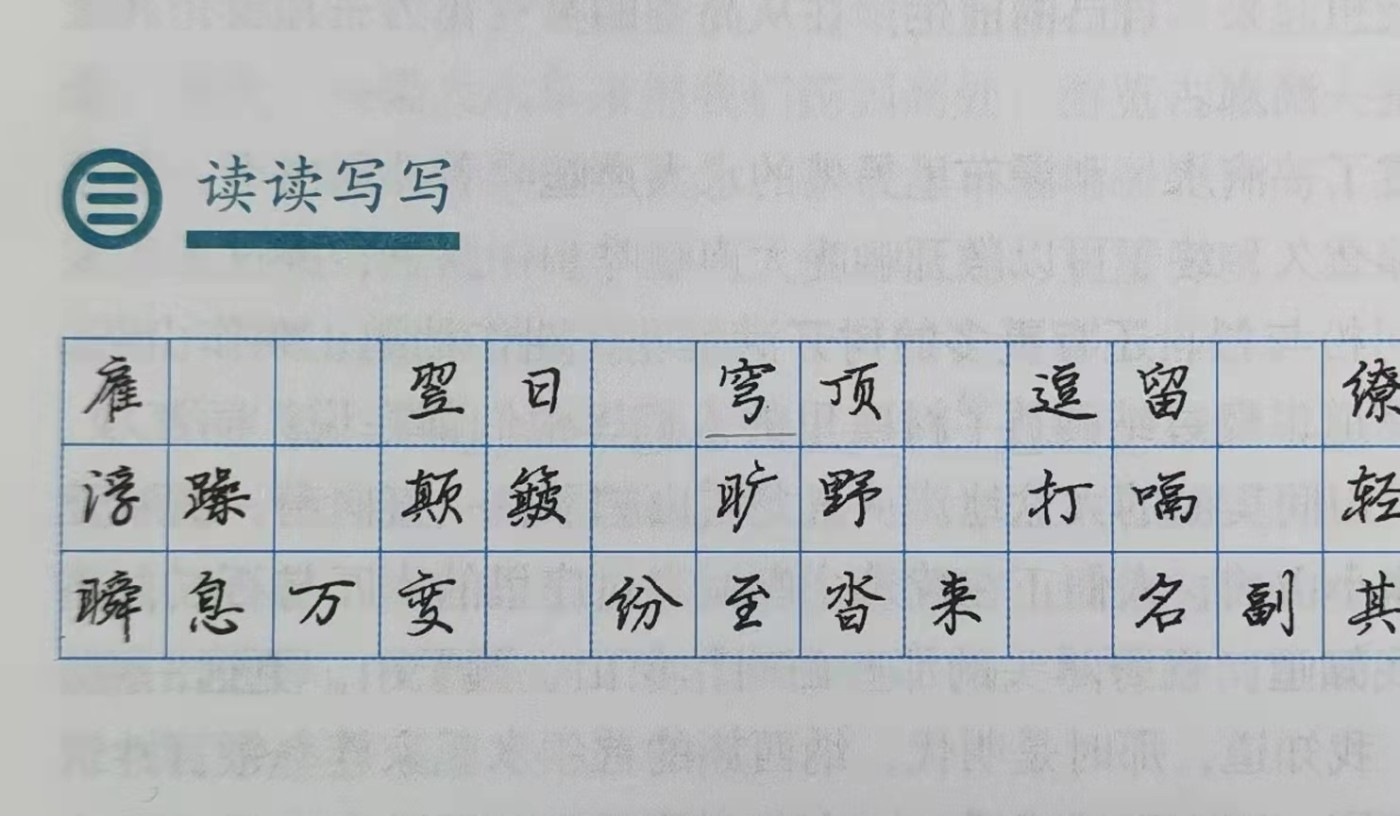 读读写写
雇 翌日 穹顶 逗留 缭
浮躁 颠簸 旷野 打嗝 轻
瞬息万变 纷至沓来 名副其